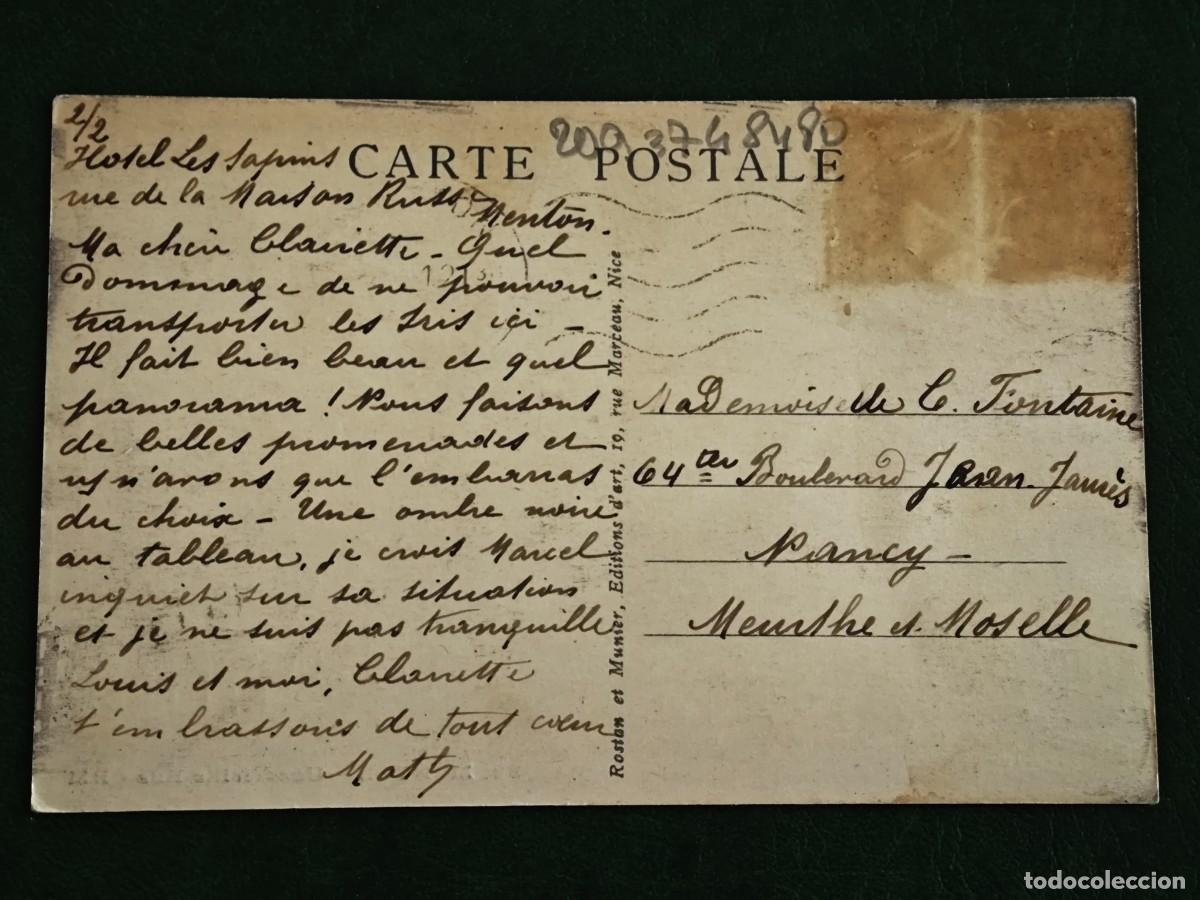 2/2
Hotel Les Sapins
rue de la Maison Russe
Menton.
CARTE POSTALE
Ma chère Clairette - Quel
Dommage de ne pouvoir
transporter les Iris ici -
Il fait bien beau et quel
panorama ! Nous faisons
de belles promenades et
n'avons que l'embarras
du choix - Une ombre noire
au tableau, je crois Marcel
inquiet sur sa situation
et je ne suis pas tranquille
Louis et moi, Clairette
t'embrassons de tout cœur
Math
Rostan et Munier, Editions d'art, 19, rue Marceau, Nice
MaDemoiselle C. Fontaine
64 ter Boulevard Jean Jaurès
Nancy -
Meurthe et Moselle
todocoleccion